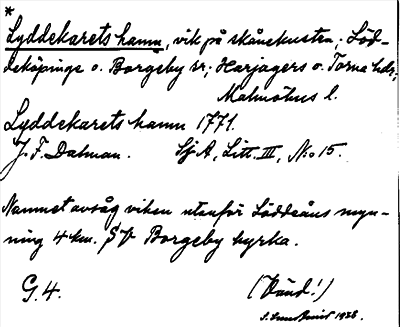 *
Lyddekarets hamn, vik på skånekusten, Löd-
deköpinge o. Borgeby sr; Harjagers o. Torna hdr;
Malmöhus l.
Lyddekarets hamn 1771.
J. F. Dalman. Sj A, Litt. III, N:o 15.
Namnet avsåg viken utanför Löddeåns myn-
ning 4 km. SV Borgeby kyrka.
G. 4. (Känd!)
1928